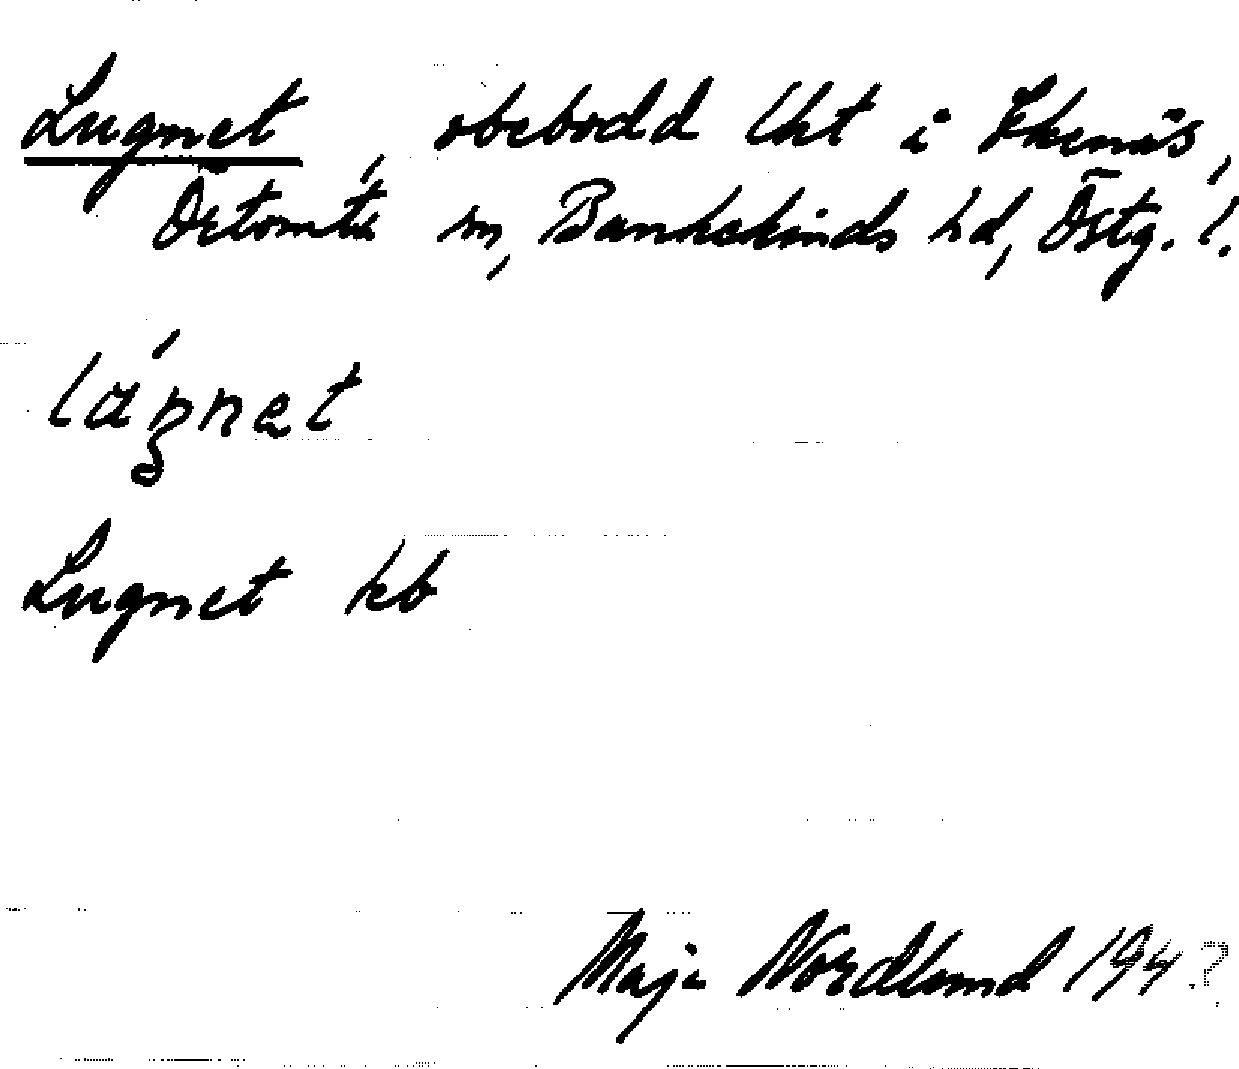 Lugnet, obebodd lht i Ekenäs,
Örtomta sn, Bankekinds hd, Östg. l.
láŋnet
Lugnet kb
Maja Nordlund 194?